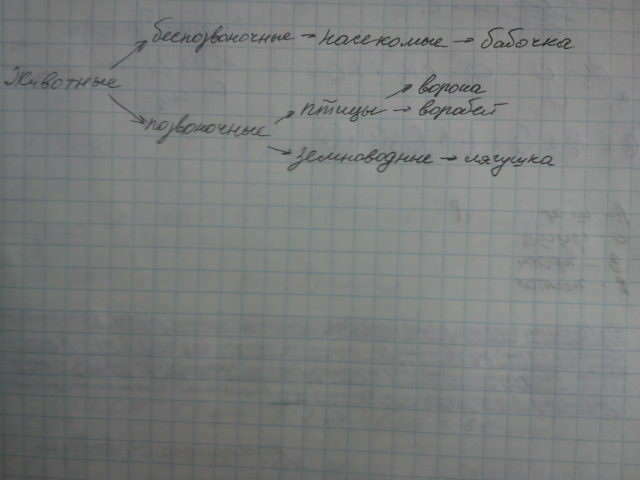 беспозвоночные → насекомые → бабочка
Животные
→ ворона
позвоночные → птицы → воробей
→ земноводные → лягушка